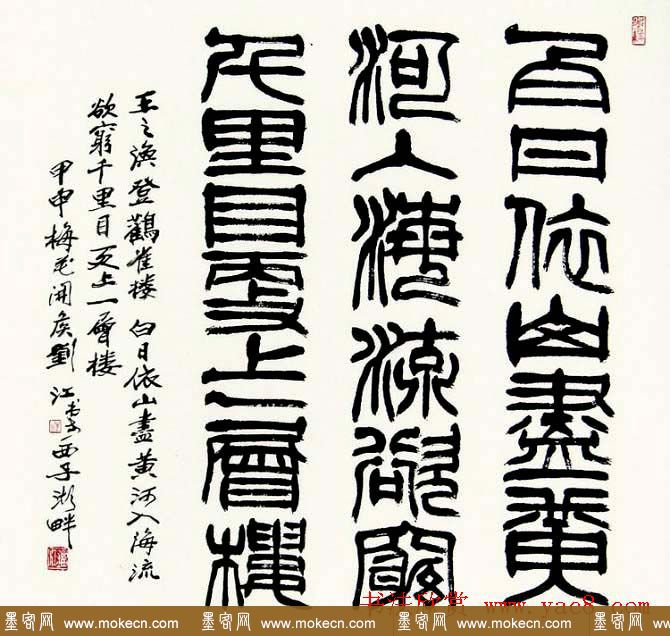 白日依山盡黃
河入海流欲窮
千里目更上一層樓
王之渙登鸛雀楼 白日依山盡黄河入海流
欲窮千里目更上一層楼
甲申梅花開候劉江書于西子湖畔
书法欣赏 www.yac8.com
墨客网 www.mokecn.com 墨客网 www.mokecn.com 墨客网 www.mokecn.com 墨客网 www.mokecn.com